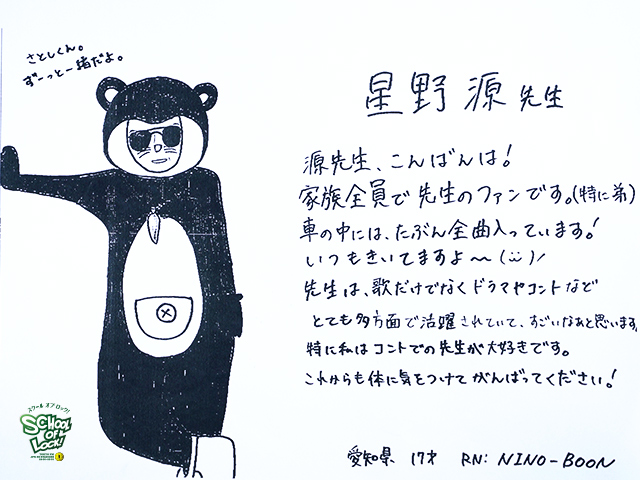 さとしくん。
ずーっと一緒だよ。
星野源先生
源先生、こんばんは！
家族全員で先生のファンです。(特に弟)
車の中には、たぶん全曲入っています！
いつもきいてますよ〜(¨)/
先生は、歌だけでなくドラマやコントなど
とても多方面で活躍されていて、すごいなぁと思います。
特に私はコントでの先生が大好きです。
これからも体に気をつけてがんばってください！
愛知県 17才 RN: NINO-BOON
スクール オブ ロック！
SCHOOL
OF
LOCK!